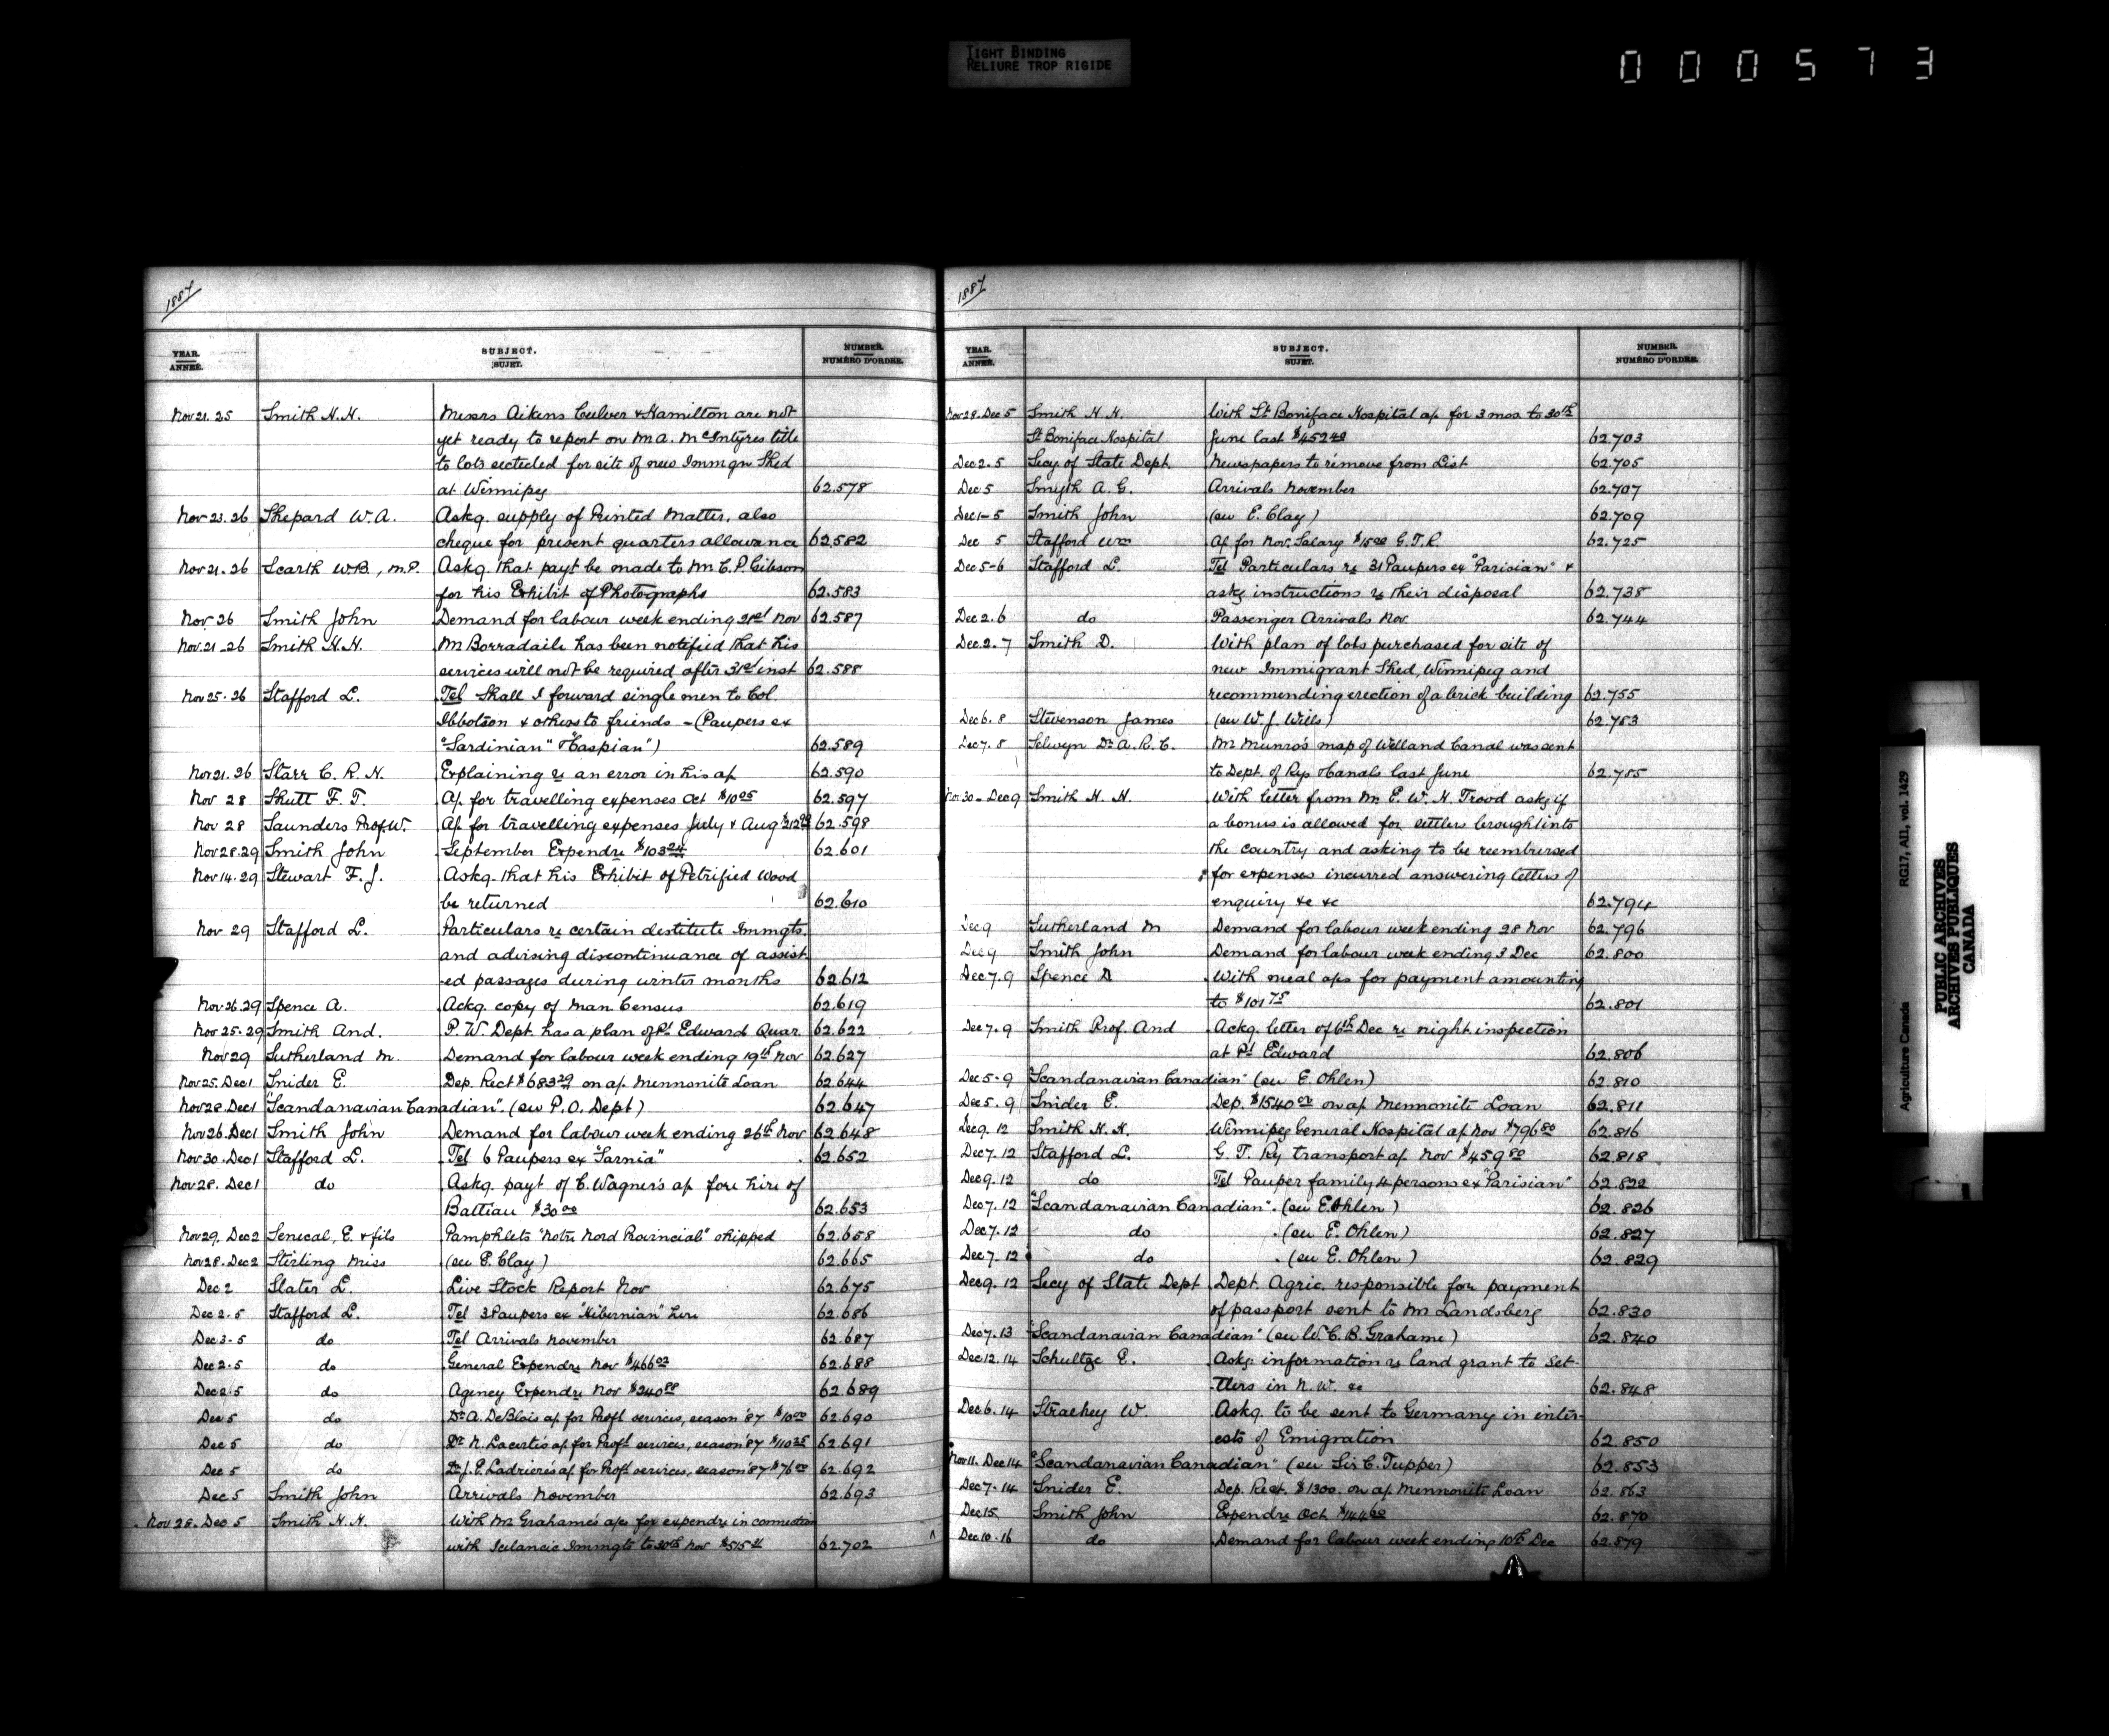 TIGHT BINDING
RELIURE TROP RIGIDE
000573
1887
YEAR. ANNÉE. SUBJECT. SUJET. NUMBER. NUMÉRO D'ORDRE.
Nov 21. 25 Smith H.H. Messrs Aikins Culver & Hamilton are not
yet ready to report on M A. McIntyres title
to lots selected for site of new Immgn Shed
at Winnipeg 62.578
Nov 23. 26 Shepard W.A. Askg. supply of Printed Matter, also
cheque for present quarters allowance 62.582
Nov 21. 26 Scarth W.B., M.P. Askg. that payt be made to Mr C.P. Gibson
for his Exhibit of Photographs 62.583
Nov 26 Smith John Demand for labour week ending Nov 62.587
Nov. 21-26 Smith H.H. Mr Borradaile has been notified that his
services will not be required after 31st inst 62.588
Nov 25. 26 Stafford L. Tel Shall I forward single men to Col.
Ibbotson & others to friends - (Paupers ex
"Sardinian" & "Caspian") 62.589
Nov 21. 26 Starr C.R.H. Explaining re an error in his a/c 62.590
Nov 28 Shutt F.T. A/c for travelling expenses Oct $10 05 62.597
Nov 28 Saunders Prof W. A/c for travelling expenses July & Aug 62.598
Nov 28.29 Smith John September Expendre $103 62.601
Nov 14.29 Stewart F.J. Askg. that his Exhibit of Petrified Wood
be returned 62.610
Nov 29 Stafford L. Particulars re certain destitute Immgts.
and advising discontinuance of assist
-ed passages during winter months 62.612
Nov 26.29 Spence A. Ackg. copy of Man Census 62.619
Nov 25.29 Smith And. P.W. Dept. has a plan of Pt Edward Quar. 62.622
Nov 29 Sutherland M. Demand for labour week ending 19th Nov 62.627
Nov 25. Dec 1 Snider E. Dep. Rect $683 29 on a/c Mennonite Loan 62.644
Nov 28. Dec 1 "Scandanavian Canadian". (see P.O. Dept) 62.647
Nov 26. Dec 1 Smith John Demand for labour week ending 26th Nov 62.648
Nov 30. Dec 1 Stafford L. Tel 6 Paupers ex "Sarnia" 62.652
Nov 28. Dec 1 do Askg. payt of C. Wagner's a/c for hire of
Battiau $30 00 62.653
Nov 29. Dec 2 Senecal, E. & fils Pamphlets "Notre Nord Provincial" shipped 62.658
Nov 28. Dec 2 Stirling Miss (see E. Clay) 62.665
Dec 2 Slater L. Live Stock Report Nov 62.675
Dec 2.5 Stafford L. Tel 3 Paupers ex "Hibernian" here 62.686
Dec 3-5 do Tel Arrivals November 62.687
Dec 2.5 do General Expendre Nov $466 02 62.688
Dec 2.5 do Agency Expendre Nov $240 62.689
Dec 5 do Dr A. DeBlois a/c for Profl services, season '87 $10 00 62.690
Dec 5 do Dr N. Lacerte's a/c for Profl services, season '87 $110 25 62.691
Dec 5 do Dr J.E. Ladriere's a/c for Profl services, season '87 $76 00 62.692
Dec 5 Smith John Arrivals November 62.693
Nov 28. Dec 5 Smith H.H. With Mr Grahame's a/cs for expendre in connection
with Icelandic Immgts to 30th Nov $515 62.702
1887
YEAR. ANNÉE. SUBJECT. SUJET. NUMBER. NUMÉRO D'ORDRE.
Nov 28. Dec 5 Smith H.H. With St Boniface Hospital a/c for 3 mos. to 30th
St Boniface Hospital June last $452 40 62.703
Dec 2.5 Secy. of State Dept. Newspapers to remove from List 62.705
Dec 5 Smyth A.G. Arrivals November 62.707
Dec 1-5 Smith John (see E. Clay) 62.709
Dec 5 Stafford Wm A/c for Nov. Salary $15 00 G.T.R. 62.725
Dec 5-6 Stafford L. Tel Particulars re 31 Paupers ex "Parisian" &
askg instructions re their disposal 62.738
Dec 2.6 do Passenger Arrivals Nov. 62.744
Dec. 2.7 Smith D. With plan of lots purchased for site of
new Immigrant Shed, Winnipeg and
recommending erection of a brick building 62.755
Dec 6.8 Stevenson James (see W.J. Wills) 62.783
Dec 7.8 Selwyn Dr A.R.C. Mr Munro's map of Welland Canal was sent
to Dept. of Rys & Canals last June 62.785
Nov 30 - Dec 9 Smith H.H. With letter from Mr E.W.H. Trood askg if
a bonus is allowed for settlers brought into
the country and asking to be reembursed
for expenses incurred answering letters of
enquiry &c &c 62.794
Dec 9 Sutherland M Demand for labour week ending 28 Nov 62.796
Dec 9 Smith John Demand for labour week ending 3 Dec 62.800
Dec 7.9 Spence D With meal a/cs for payment amounting
to $101 75 62.801
Dec 7.9 Smith Prof. And Ackg. letter of 6th Dec re night inspection
at Pt Edward 62.806
Dec 5.9 "Scandanavian Canadian" (see E. Ohlen) 62.810
Dec 5.9 Snider E. Dep. $1540 00 on a/c Mennonite Loan 62.811
Dec 9. 12 Smith H.H. Winnipeg General Hospital a/c Nov $796 80 62.816
Dec 7. 12 Stafford L. G.T. Ry transport a/c Nov $459 80 62.818
Dec 9. 12 do Tel Pauper family 4 persons ex "Parisian" 62.822
Dec 7. 12 "Scandanavian Canadian". (see E. Ohlen) 62.826
Dec 7. 12 do (see E. Ohlen) 62.827
Dec 7. 12 do (see E. Ohlen) 62.829
Dec 9. 12 Secy of State Dept Dept. Agric. responsible for payment
of passport sent to Mr Landsberg 62.830
Dec 7. 13 "Scandanavian Canadian" (see W.C.B. Grahame) 62.840
Dec 12. 14 Schultze E. Askg. information re land grant to Set-
tlers in N.W. &c 62.848
Dec 6. 14 Strachey W. Askg. to be sent to Germany in inter-
ests of Emigration 62.850
Nov 11. Dec 14 "Scandanavian Canadian" (see Sir C. Tupper) 62.853
Dec 7. 14 Snider E. Dep. Rect. $1300. on a/c Mennonite Loan 62.863
Dec 15 Smith John Expendre Oct $144 00 62.870
Dec 10. 16 do Demand for labour week ending 10th Dec 62.879
Agriculture Canada RG17, AII, vol. 1429
PUBLIC ARCHIVES
ARCHIVES PUBLIQUES
CANADA